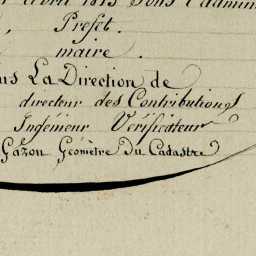 avril 1813 sous l'admin
, Préfet.
maire.
us La Direction de
directeur des Contributions
Ingénieur Vérificateur
Gazou Géomètre Du Cadastre